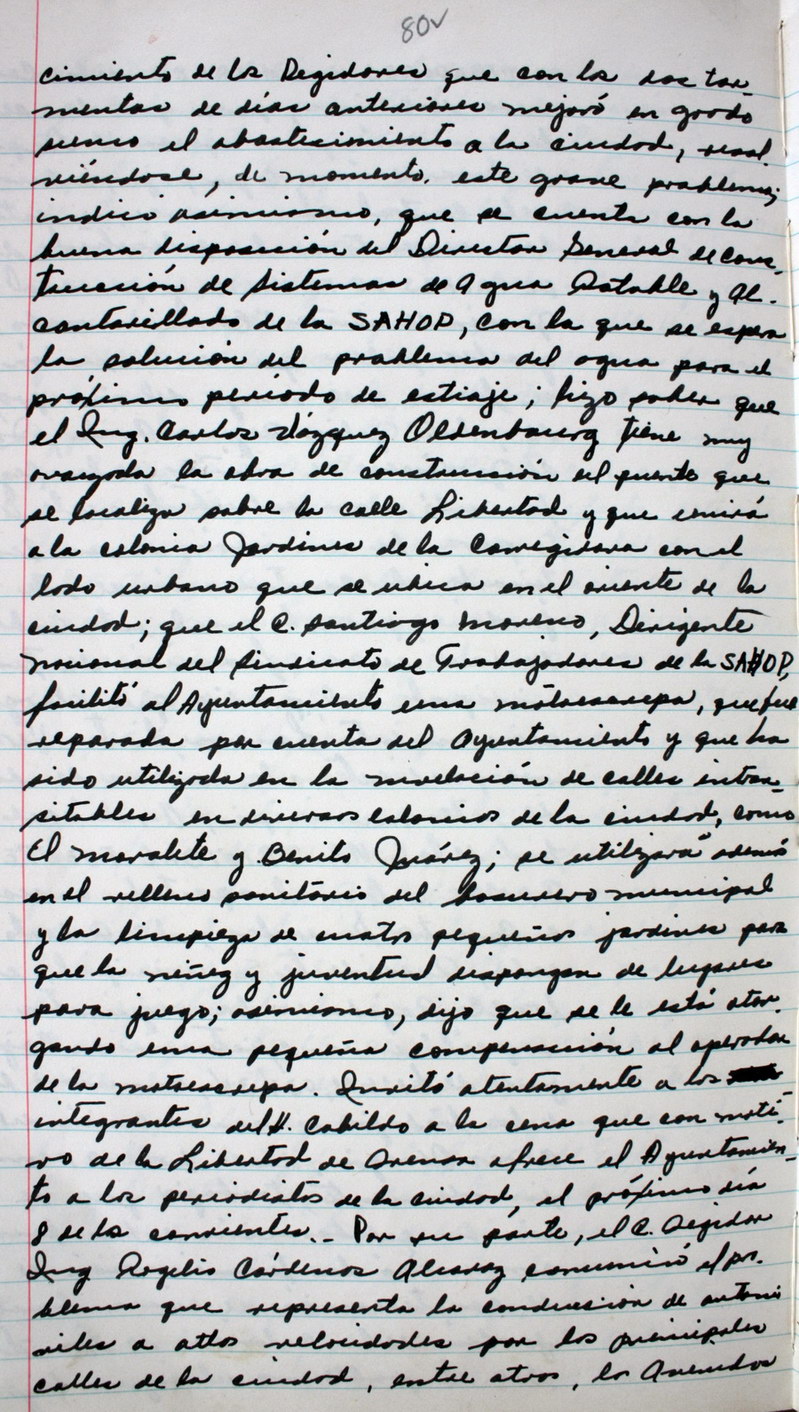 80v
cimiento de los Regidores que con las dos tor-
mentas de días anteriores mejoró en grado
sumo el abastecimiento a la ciudad, resol-
viéndose, de momento, este grave problema;
indicó asimismo, que se cuenta con la
buena disposición del Director General de Cons-
trucción de Sistemas de Agua Potable y Al-
cantarillado de la SAHOP, con la que se espera
la solución del problema del agua para el
próximo período de estiaje; hizo saber que
el Ing. Carlos Vázquez Oldenbourg tiene muy
avanzada la obra de construcción del puente que
se localiza sobre la calle Libertad y que unirá
a la colonia Jardines de la Corregidora con el
lado urbano que se ubica en el oriente de la
ciudad; que el C. Santiago Moreno, Dirigente
nacional del Sindicato de Trabajadores de la SAHOP,
facilitó al Ayuntamiento una motoescrepa, que fue
reparada por cuenta del Ayuntamiento y que ha
sido utilizada en la nivelación de calles intran-
sitables en diversas colonias de la ciudad, como
El Moralete y Benito Juárez; se utilizará además
en el relleno sanitario del basurero municipal
y la limpieza de cuatro pequeños jardines para
que la niñez y juventud dispongan de lugares
para juego; asimismo, dijo que se le está otor-
gando una pequeña compensación al operador
de la motoescrepa. Invitó atentamente a los
integrantes del H. Cabildo a la cena que con moti-
vo de la Libertad de Prensa ofrece el Ayuntamien-
to a los periodistas de la ciudad, el próximo día
8 de los corrientes.- Por su parte, el C. Regidor
Ing Rogelio Cárdenas Alvarez comunicó el pro-
blema que representa la conducción de automó
viles a altas velocidades por las principales
calles de la ciudad, entre otras, las Avenidas